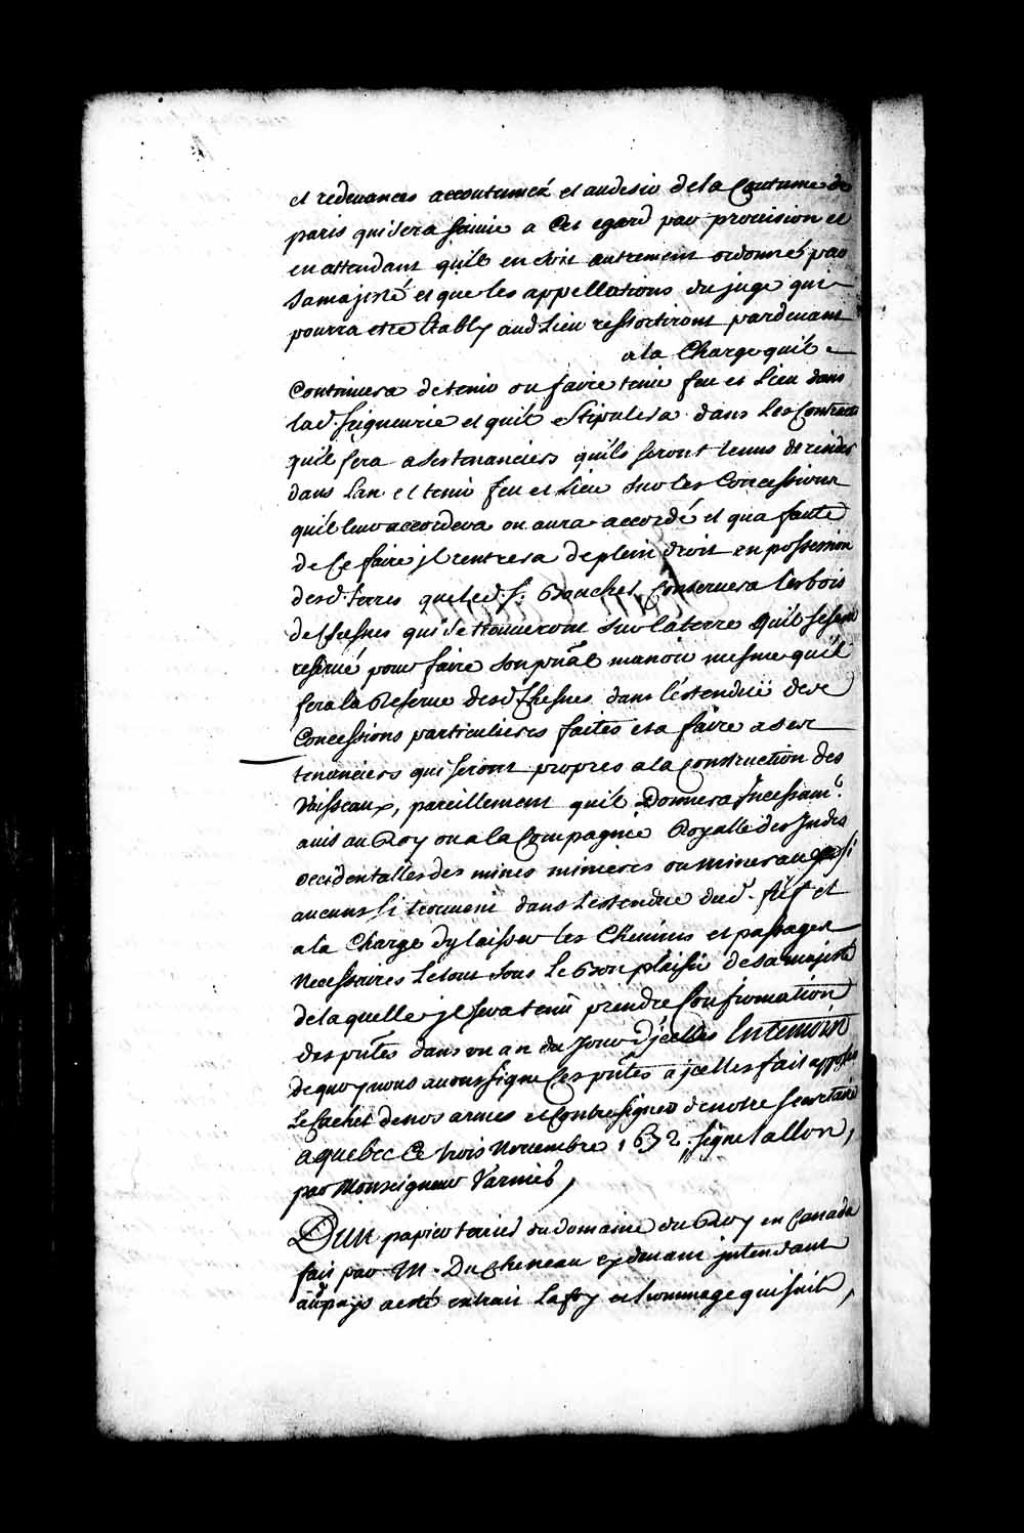 et redevances accoutumez et audesir dela Coutume de
paris qui sera suivie a Cet egard par provision et
en attendant qu'il en soit autrement ordonné par
sa majesté et que les appellations du juge qui
pourra etre Etably aud Lieu ressortiront pardevant
ala Charge quil
Continuera de tenir ou faire tenir feu et Lieu dans
lad. seigneurie et quil Stipulera dans les Contracts
quil fera a ses tenanciers quils seront tenus de resider
dans Lan et tenir feu et Lieu sur les Concessions
quil leur accordera ou aura accordé et qua faute
de Ce faire jl rentrera de plein droit en possession
desd. terres que led. S. Bouchet Conservera les bois
de Chesnes qui se trouveront sur la terre quil se sera
reservé pour faire son prñal manoir mesme quil
fera la Reserve desd Chesnes dans l'estenduë des
Concessions particulieres faites et a faire a ses
tenanciers qui seront propres ala Construction des
Vaisseaux, pareillement quil Donnera Incessam.
avis au Roy ou a la Compagnie Royalle des Indes
occidentalles des mines minieres ou mineraux si
aucuns s'i trouvent dans Lestendue dud. fief et
ala Charge dy laisser les Chemins et passages
Necessaires Le tout sous Le bon plaisir de sa majesté
de laquelle jl sera tenu prendre Confirmation
des pñtes dans un an du Jour d'jcelles En temoin
de quoy nous avons signé Ces pñtes a jcelles fait apposer
Le Cachet de nos armes et Contresigner de notre Secretaire
a quebec Ce trois Novembre 1672. signé tallon,
par Monseigneur Varnier,
Dun papier terrier du domaine du Roy en Canada
fait par M. Du Chesneau cy devant jntendant
aud pays a esté extrait La foy et hommage qui suit,